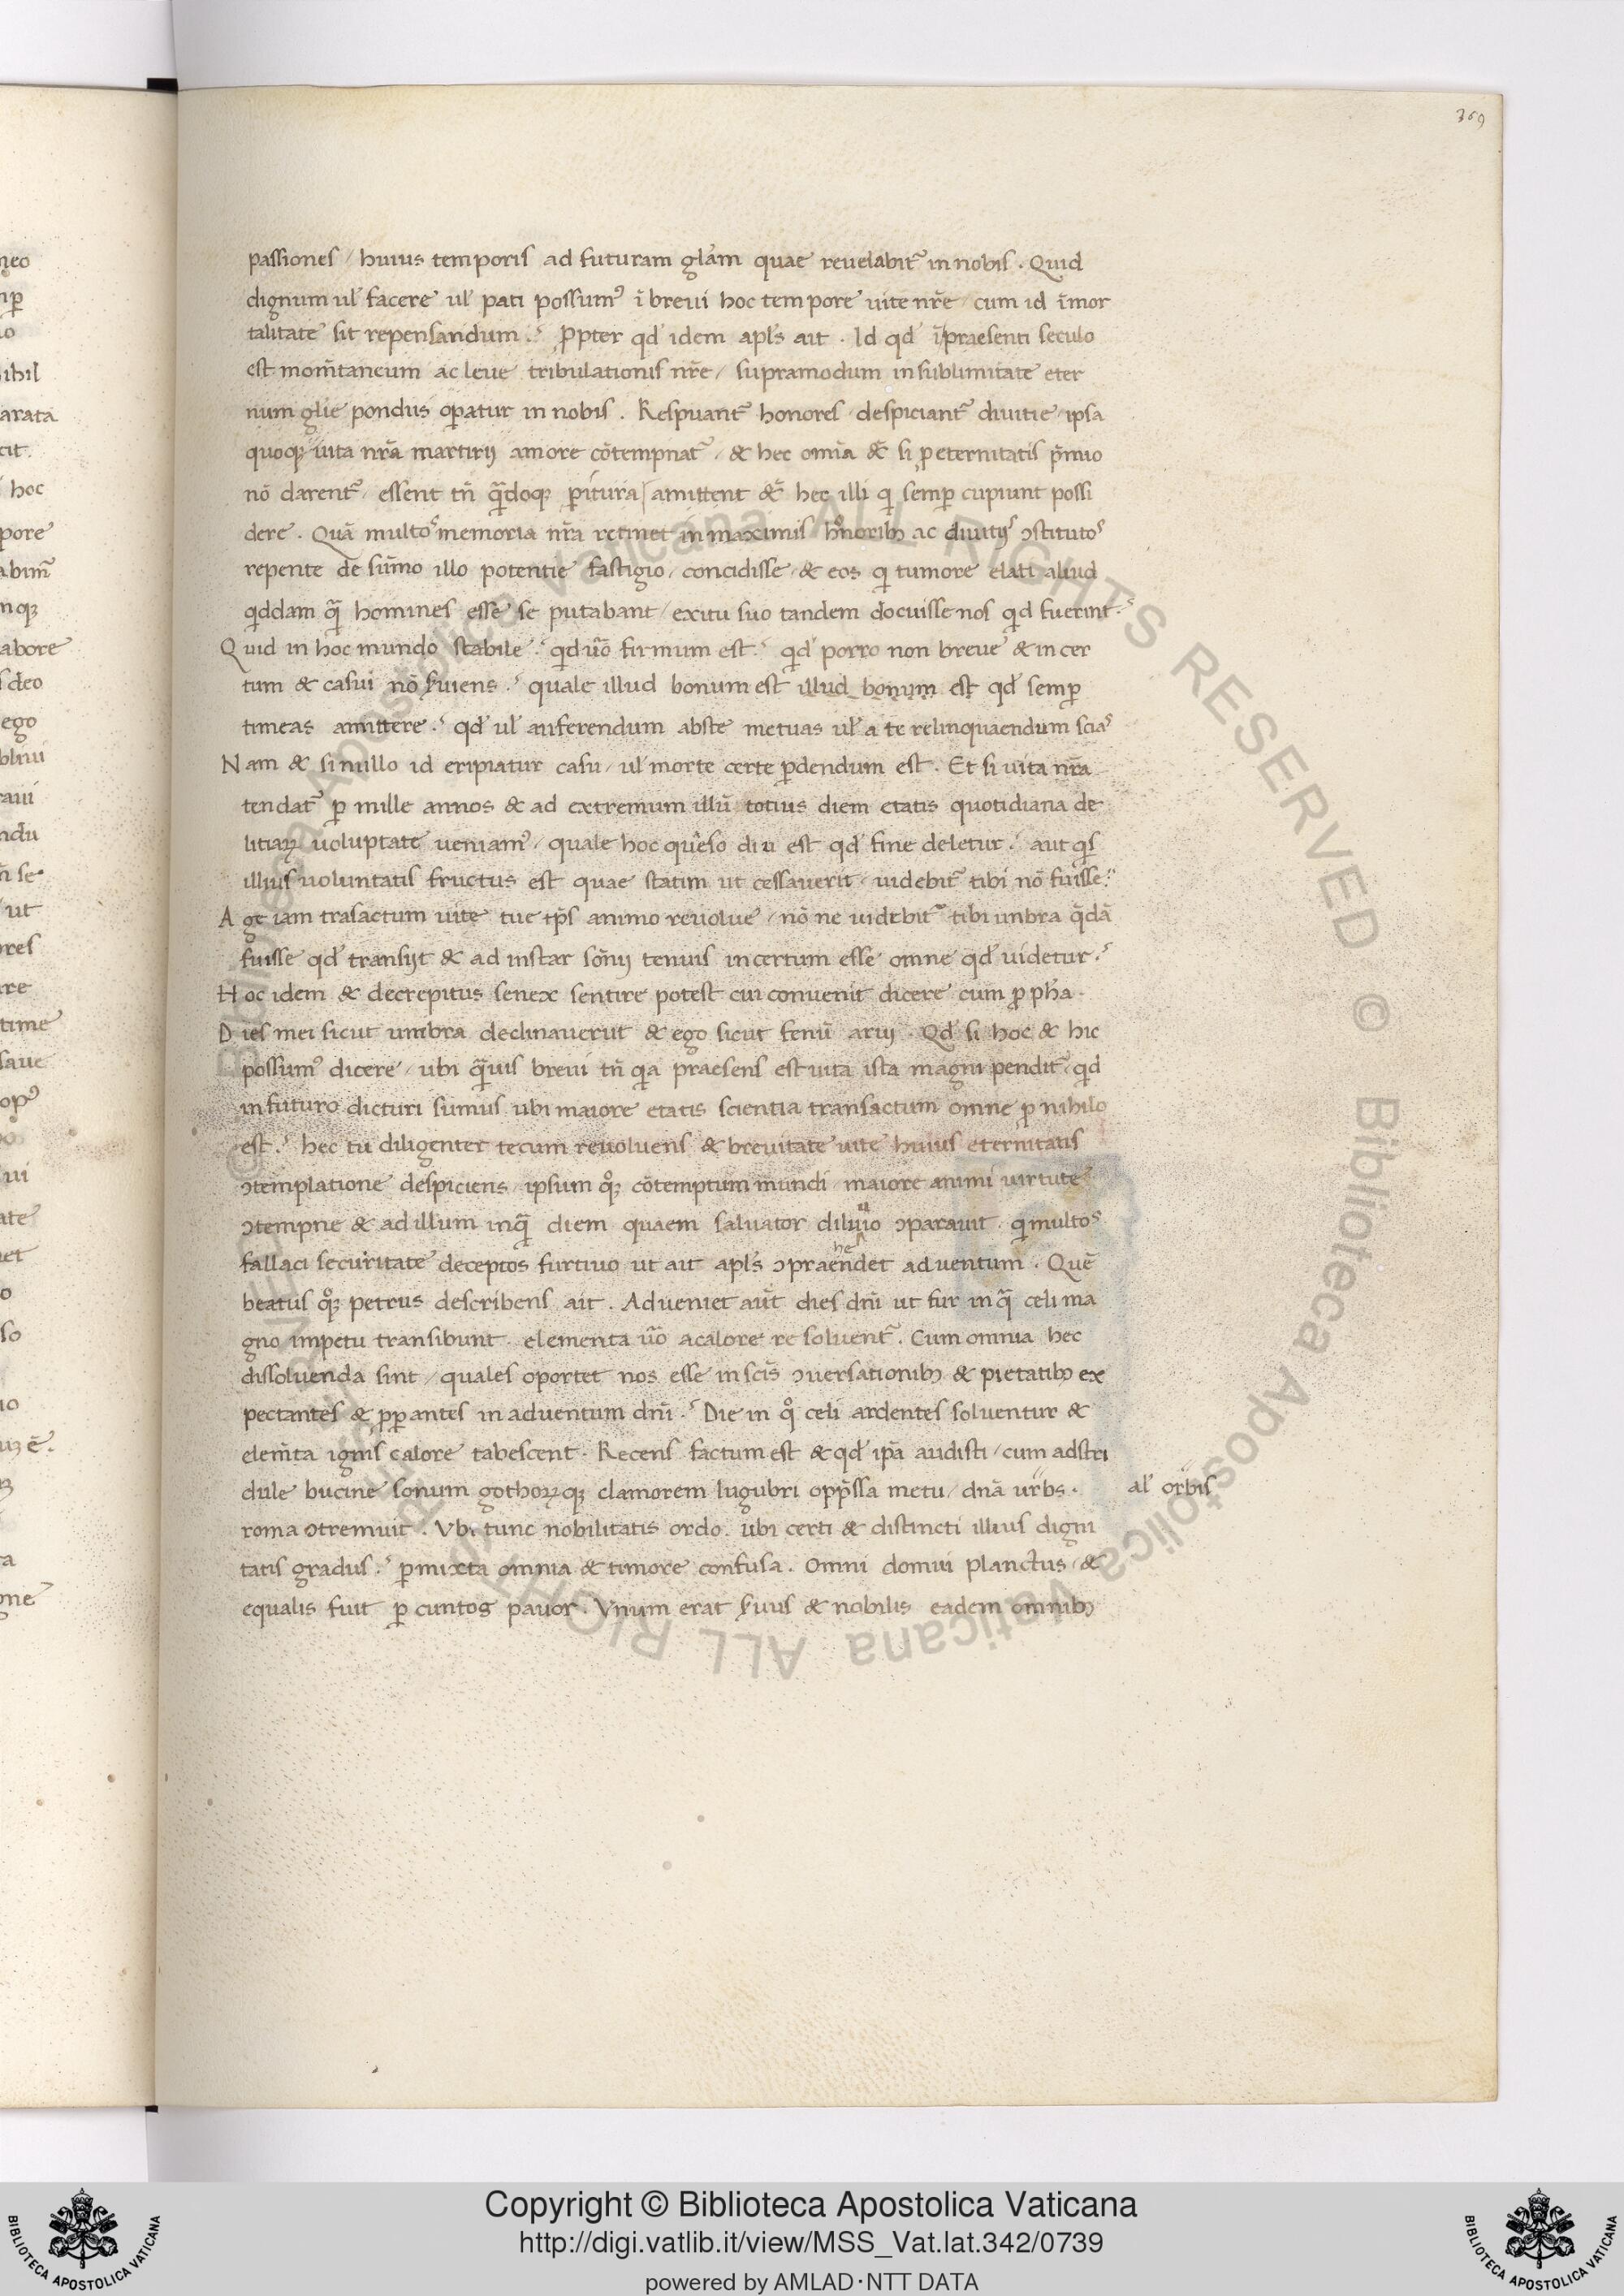 369
passiones / huius temporis ad futuram glãm quae reuelabit᷑ in nobis . Quid
dignum ul̛ facere ul̛ pati possumꝰ ĩ breui hoc tempore uite nr̃e / cum id ĩmor
talitate sit repensandum ? Ꝓpter qd̛ idem apl̃s ait . Id qd̛ ĩ praesenti seculo
est mom̃taneum ac leue tribulationis nr̃e / supramodum in sublimitate eter
num gl̃ie pondus oꝑatur in nobis . Respuant᷑ honores / despiciant᷑ diuitie / ipsa
quoqꝫ uita nr̃a martirij amore cõtempnat᷑ / & hec omĩa &̃ si ꝑ eternitatis p̃mio
nõ darent᷑ / essent tñ q̃doqꝫ ꝑitura / amittent &̃ hec illi qͥ semꝑ cupiunt possi
dere . Quã multoˢ memoria nr̃a retinet in maximis honoribꝫ ac diuitijˢ ↄstitutoˢ
repente de sũmo illo potentie fastigio / concidisse / & eos qͥ tumore elati aliud
qͥddam q̃ homines esse se putabant / exitu suo tandem docuisse nos qͥd fuerint ?
Quid in hoc mundo stabile ? qͥd ũo firmum est ? qͥd porro non breue & in cer
tum & casui nõ suiens ? quale illud bonum est illud bonum est qd̛ semꝑ
timeas amittere ? qd̛ ul̛ auferendum abste metuas ul̛ a te relinquaendum sciaˢ
Nam & si nullo id eripiatur casu / ul̛ morte certe ꝑdendum est . Et si uita nr̃a
tendat᷑ ꝑ mille annos & ad extremum illũ totius diem etatis quotidiana de
litiaꝝ uoluptate ueniamꝰ / quale hoc queso diu est qd̛ fine deletur ? aut qͥs
illius uoluntatis fructus est quae statim ut cessauerit / uidebit᷑ tibi nõ fuisse ?
Age iam trasactum uite tue tp̃s animo reuolue / nõ ne uidebit᷑ tibi unbra q̃dã
fuisse qd̛ transijt & ad instar sõnij tenuis incertum esse omne qd̛ uidetur ?
Hoc idem & decrepitus senex sentire potest cui conuenit dicere cum ꝓpha .
Dies mei sicut umbra declinauerũt & ego sicut fenũ arui . Qd̛ si hoc & hic
possumꝰ dicere / ubi q̃uis breui tñ qͥa praesens est uita ista magni pendit᷑ / qͥd
in futuro dicturi sumus ubi maiore etatis scientia transactum omne ꝓ nihilo
est ? hec tu diligenter tecum reuoluens & breuitate uite huius eternitatis
ↄtemplatione despiciens / ipsum qͦꝫ cõtemptum mundi / maiore animi uirtute
ↄtempne & ad illum inq̃ diem quaem saluator diluuio ↄparauit . qͥ multoˢ
fallaci securitate deceptos furtiuo ut ait apl̃s ↄpraehendet aduentum . Quẽ
beatus qͦꝫ petrus describens ait . Adueniet aũt dies dñi ut fur in q̃ celi ma
gno impetu transibunt . elementa ũo a calore resoluent᷑ . Cum omnia hec
dissoluenda sint / quales oportet nos esse in scĩs ↄuersationibꝫ & pietatibꝫ ex
pectantes & ꝓꝑantes in aduentum dñi ? Die in qͦ celi ardentes soluentur &
elem̃ta ignis calore tabescent . Recens factum est & qd̛ ip̃a audisti / cum ad stri
dule bucine sonum gothoꝝqꝫ clamorem lugubri opp̃ssa metu / dñã urbs .
al̛ orbis
roma ↄtremuit . Vbi tunc nobilitatis ordo . ubi certi & distincti illius digni
tatis gradus ? ꝑmixta omnia & timore confusa . Omni domui planctus / &
equalis fuit ꝑ cuntos pauor . Vnum erat suus & nobilis eadem omnibꝫ
neo
mꝑ
io
ihil
arata
cit.
hoc
pore
abim᷑
mqꝫ
abore
s deo
ego
bliui
raui
ndũ
ñ se
ut
res
re
time
saue
opꝰ
ui
ate
et
o
so
io
uꝫ ẽ.
a
one
© Biblioteca Apostolica Vaticana ALL RIGHTS RESERVED © Biblioteca Apostolica Vaticana ALL RIGHTS RESERVED
Copyright © Biblioteca Apostolica Vaticana
http://digi.vatlib.it/view/MSS_Vat.lat.342/0739
powered by AMLAD·NTT DATA
BIBLIOTECA APOSTOLICA VATICANA
BIBLIOTECA APOSTOLICA VATICANA